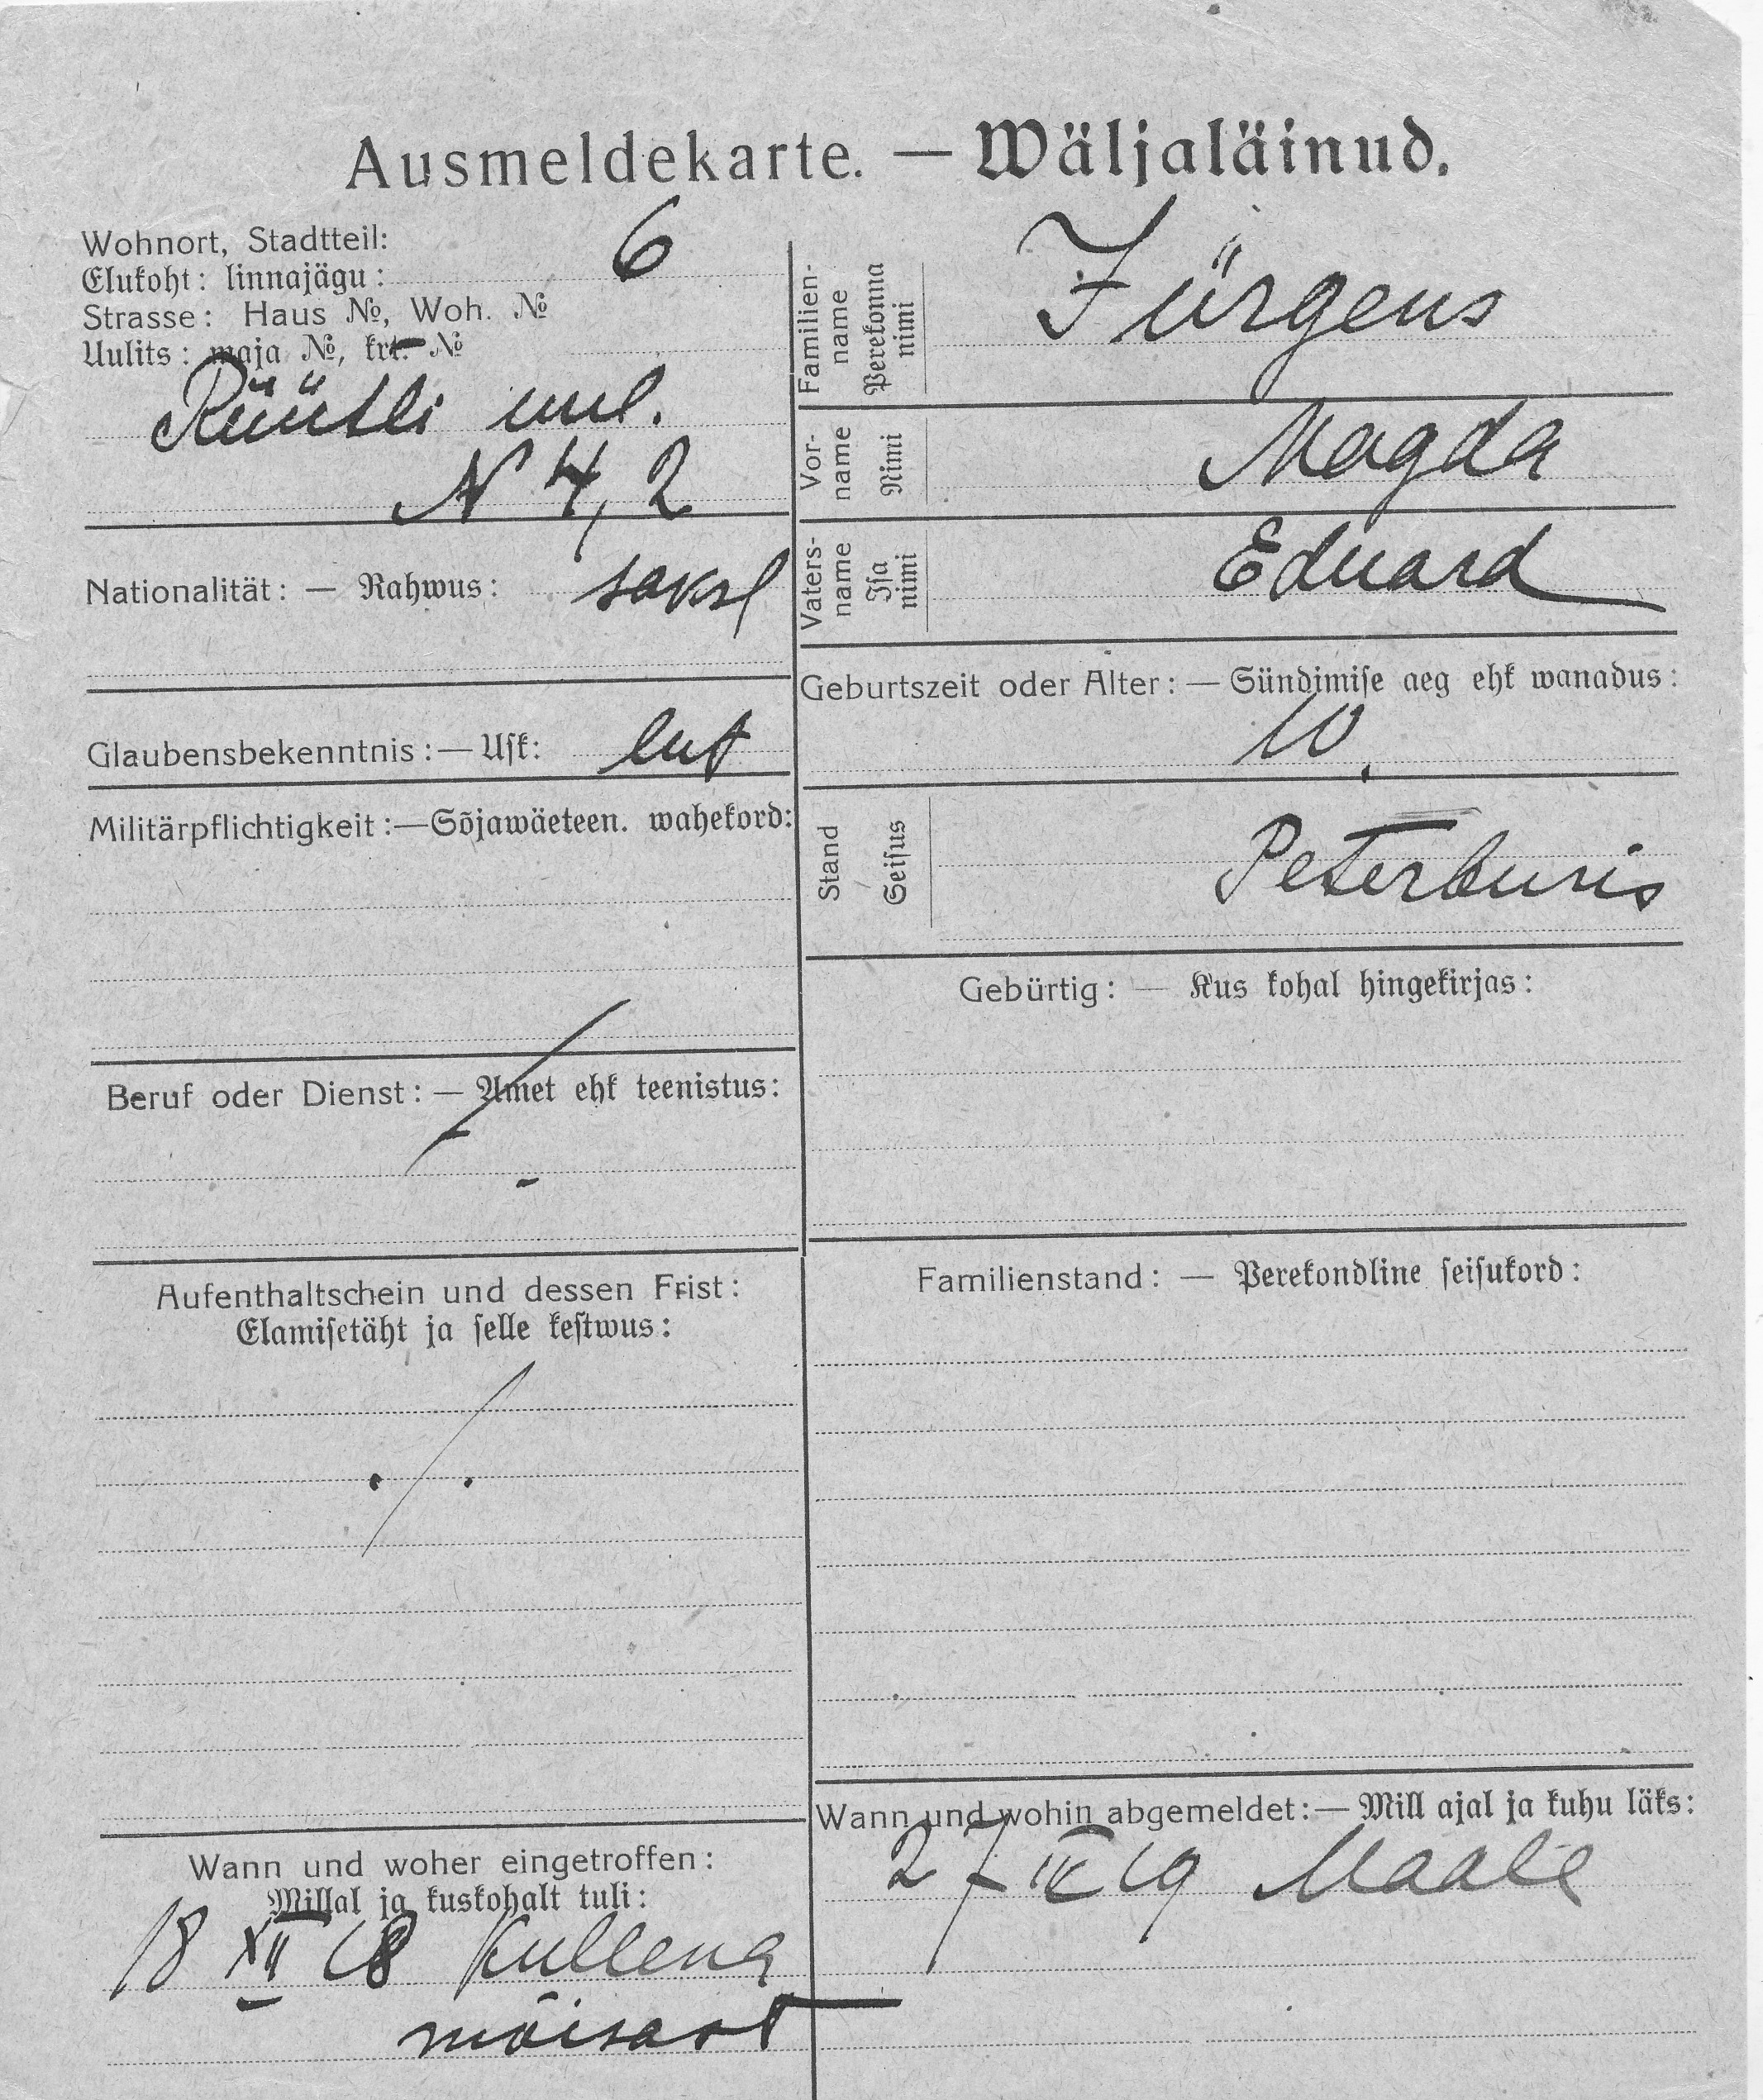 Ausmeldekarte. — Wäljaläinud.
Wohnort, Stadtteil:
Elukoht: linnajägu: 6
Strasse: Haus №, Woh. №
Uulits: maja №, krt. №
Rüütli uul.
N 4, 2
Nationalität: — Rahwus: saksl
Glaubensbekenntnis: — Usk: lut
Militärpflichtigkeit: — Sõjawäeteen. wahekord:
Beruf oder Dienst: — Amet ehk teenistus:
Aufenthaltschein und dessen Frist:
Elamisetäht ja selle kestwus:
Wann und woher eingetroffen:
Millal ja kuskohalt tuli:
18 XII 18 Kullena
mõisast
Familien-
name
Perekonna
nimi
Jürgens
Vor-
name
Nimi
Magda
Vaters-
name
Isa
nimi
Eduard
Geburtszeit oder Alter: — Sündimise aeg ehk wanadus:
10.
Stand
Seisus
Peterburis
Gebürtig: — Kus kohal hingekirjas:
Familienstand: — Perekondline seisukord:
Wann und wohin abgemeldet: — Mill ajal ja kuhu läks:
27 19 Maale